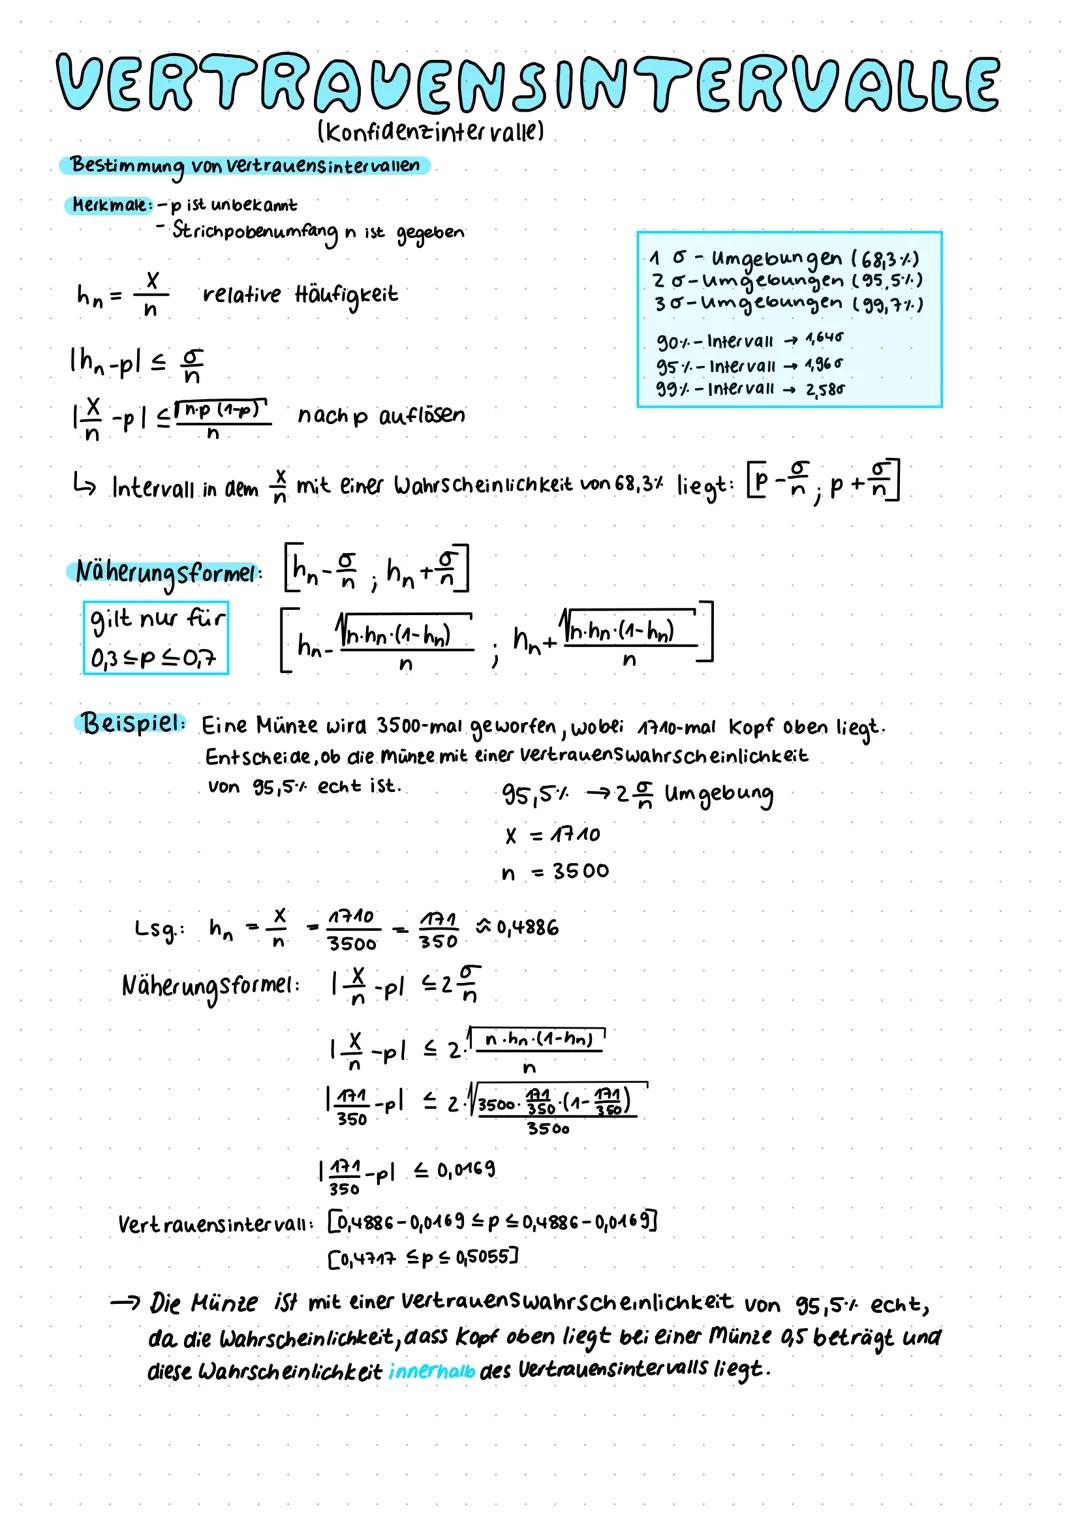 VERTRAUENSINTERVALLE
(Konfidenzintervalle)
Bestimmung von Vertrauensintervallen
Merkmale: - p ist unbekannt
- Strichpobenumfang n ist gegeben
1 σ - Umgebungen (68,3%)
2 σ - Umgebungen (95,5%)
3 σ - Umgebungen (99,7%)
90% - Intervall → 1,64σ
95% - Intervall → 1,96σ
99% - Intervall → 2,58σ
hn = X/n relative Häufigkeit
|hn-p| ≤ σ/n
|X/n -p| ≤ √n·p (1-p)/n nach p auflösen
↳ Intervall in dem X/n mit einer Wahrscheinlichkeit von 68,3% liegt: [p - σ/n ; p + σ/n]
Näherungsformel: [hn - σ/n ; hn + σ/n]
gilt nur für
0,3 ≤ p ≤ 0,7
[hn - √n·hn·(1-hn)/n ; hn + √n·hn·(1-hn)/n]
Beispiel: Eine Münze wird 3500-mal geworfen, wobei 1710-mal Kopf oben liegt.
Entscheide, ob die Münze mit einer Vertrauenswahrscheinlichkeit
von 95,5% echt ist.
95,5% → 2 σ/n Umgebung
X = 1710
n = 3500
Lsg.: hn = X/n = 1710/3500 = 171/350 ≈ 0,4886
Näherungsformel: |X/n -p| ≤ 2 σ/n
|X/n -p| ≤ 2·√n·hn·(1-hn)/n
|171/350 -p| ≤ 2·√3500·171/350·(1-171/350)/3500
|171/350 -p| ≤ 0,0169
Vertrauensintervall: [0,4886 - 0,0169 ≤ p ≤ 0,4886 - 0,0169]
[0,4717 ≤ p ≤ 0,5055]
→ Die Münze ist mit einer Vertrauenswahrscheinlichkeit von 95,5% echt,
da die Wahrscheinlichkeit, dass Kopf oben liegt bei einer Münze 0,5 beträgt und
diese Wahrscheinlichkeit innerhalb des Vertrauensintervalls liegt.